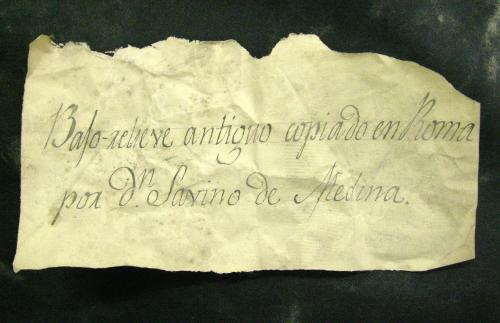 BaJo-relieve antiguo copiado en Roma
por Dn. Savino de Medina.